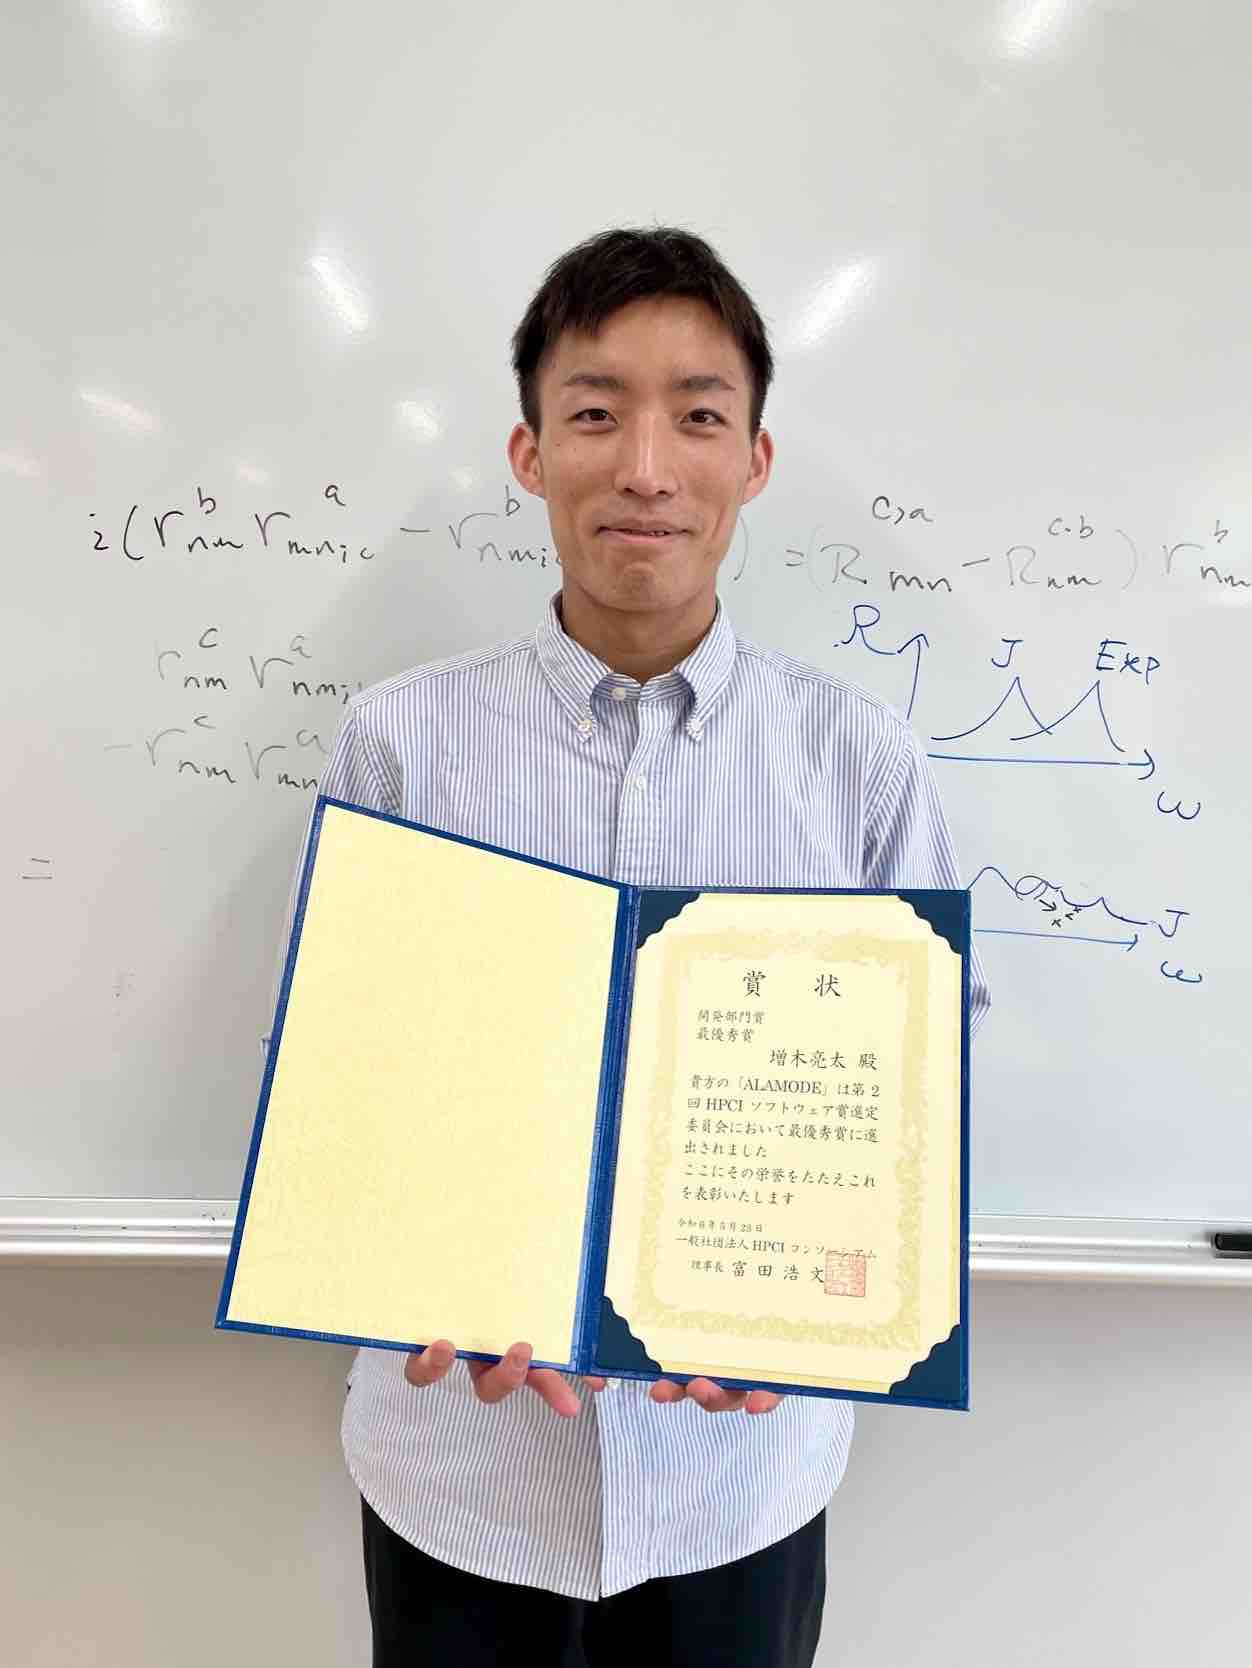 i(r^b_{nm} r^a_{mn;c} - r^b_{nm;c} ) = (R^{c,a}_{mn} - R^{c,b}_{nm}) r^b_{nm}
r^c_{nm} r^a_{nm;}
- r^c_{nm} r^a_{mn}
=
R
J
Exp
ω
J
ω
賞 状
開発部門賞
最優秀賞
増木亮太 殿
貴方の「ALAMODE」は第2
回HPCIソフトウェア賞選定
委員会において最優秀賞に選
出されました
ここにその栄誉をたたえこれ
を表彰いたします
令和6年5月23日
一般社団法人HPCIコンソーシアム
理事長 富田浩文